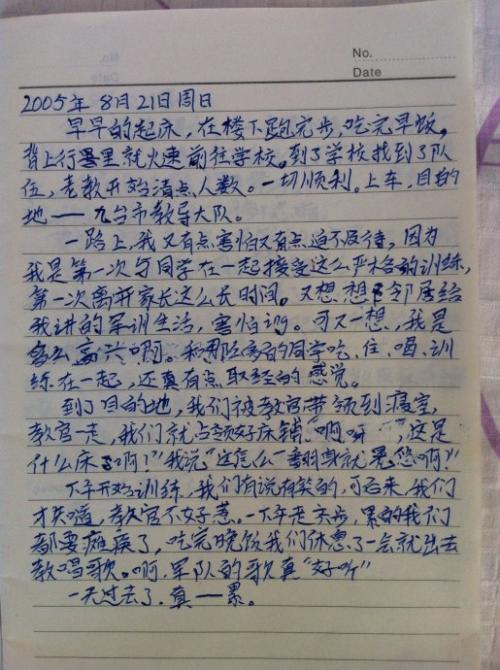 No.
Date
2005年8月21日周日
早早的起床,在楼下跑完步,吃完早饭,
背上行里就火速前往学校。到了学校找到了队
伍,老教开始清点人数。一切顺利。上车,目的
地——九台市教导大队。
一路上,我又有点害怕又有点迫不及待,因为
我是第一次与同学在一起接受这么严格的训练,
第一次离开家长这么长时间。又想想邻居给
我讲的军训生活,害怕。可又一想,我是
多么高兴啊。和那么多的同学吃、住、训
练在一起,还真有点取经的感觉。
到了目的地,我们被教官带领到寝室,
教官一走,我们就占领好床铺。"啊,这是
什么床啊?"我说"这怎么一翻身就晃悠啊?"
下午开始训练,我们有说有笑的,可后来,我们
才知道,教官不好惹。一下午走六步,累的我们
都要瘫痪了,吃完晚饭我们休息了一会就出去
教唱歌。啊,军队的歌真"好听"
一天过去了,真一累。